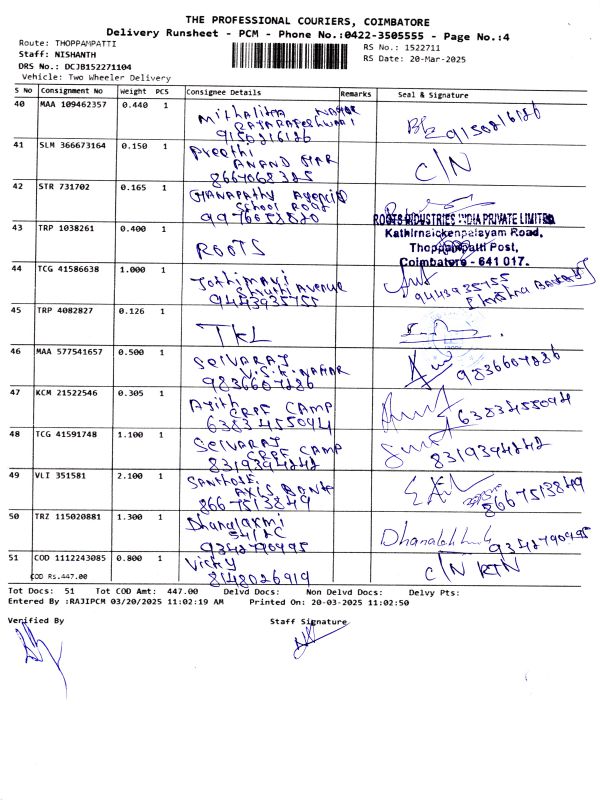 THE PROFESSIONAL COURIERS, COIMBATORE
Delivery Runsheet - PCM - Phone No.:0422-3505555 - Page No.:4
Route: THOPPAMPATTI
RS No.: 1522711
Staff: NISHANTH
RS Date: 20-Mar-2025
DRS No.: DCJB152271104
Vehicle: Two Wheeler Delivery
S No Consignment No Weight PCS Consignee Details Remarks Seal & Signature
40 MAA 109462357 0.440 1
NAGAR
9150816186 9150816186
41 SLM 366673164 0.150 1 Preethi
ANAND NAR C/N
8667068325
42 STR 731702 0.165 1 GANAPATHY Agencies
School Road
9976058820
ROOTS INDUSTRIES INDIA PRIVATE LIMITED
Kathirnaickenpalayam Road,
Thoppampatti Post,
Coimbatore - 641 017.
43 TRP 1038261 0.400 1 ROOTS
44 TCG 41586638 1.000 1 Jothimani
Sruthi Avenue
9443935755 9443935755
45 TRP 4082827 0.126 1 TKL
46 MAA 577541657 0.500 1 Selvaraj
V.S.K. NAGAR
9836607286 9836607286
47 KCM 21522546 0.305 1 Ajith
CRPF CAMP
6383455094 6383455094
48 TCG 41591748 1.100 1 Selvaraj
CRPF CAMP
8319394242 8319394242
49 VLI 351581 2.100 1 Santhose
AXIS Bank
8667513849 8667513849
50 TRZ 115020881 1.300 1 Dhanalaxmi
9342790495 9342790495
51 COD 1112243085 0.800 1 Vicky C/N RTN
COD Rs.447.00 8148026919
Tot Docs: 51 Tot COD Amt: 447.00 Delvd Docs: Non Delvd Docs: Delvy Pts:
Entered By :RAJIPCM 03/20/2025 11:02:19 AM Printed On: 20-03-2025 11:02:50
Verified By Staff Signature